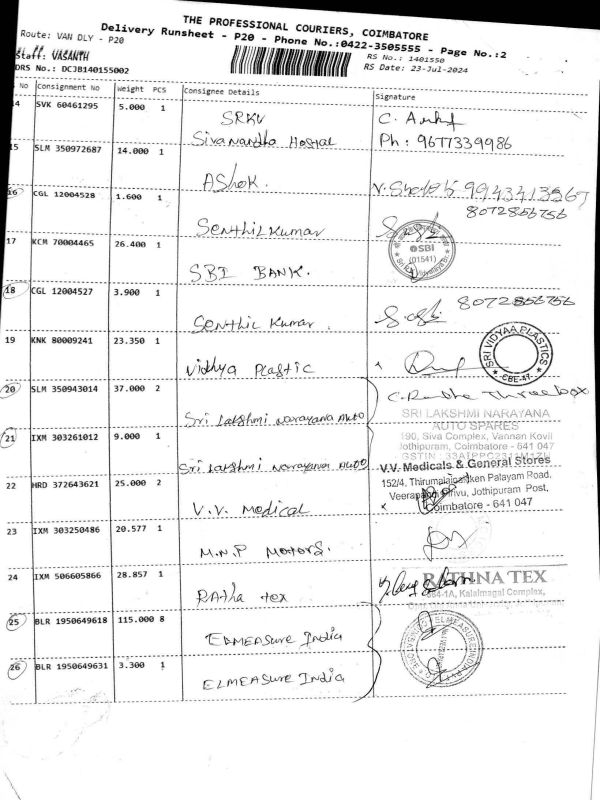 THE PROFESSIONAL COURIERS, COIMBATORE
Route: VAN DLY - P20
Delivery Runsheet - P20 - Phone No.:0422-3505555 - Page No.:2
Staff: VASANTH
RS No.: 1401550
DRS No.: DCJB140155002
RS Date: 23-Jul-2024
No Consignment No Weight PCS Consignee Details Signature
14 SVK 60461295 5.000 1 SRKV
Sivanandha Hostal
Ph: 9677339986
15 SLM 350972687 14.000 1 AShok. 9943413567
16 CGL 12004528 1.600 1 Senthil Kumar 8072856756
17 KCM 70004465 26.400 1 SBI BANK. SBI (01541)
18 CGL 12004527 3.900 1 Senthil Kumar. 8072856756
19 KNK 80009241 23.350 1 Vidhya Plastic SRI VIDYAA PLASTICS CBE-47
20 SLM 350943014 37.000 2 Sri Lakshmi Narayana Auto
SRI LAKSHMI NARAYANA
AUTO SPARES
190, Siva Complex, Vannan Kovil
Jothipuram, Coimbatore - 641 047
21 IXM 303261012 9.000 1 Sri Lakshmi Narayana Auto
V.V. Medicals & General Stores
152/4, Thirumalainaicken Palayam Road,
Veerapandi Pirivu, Jothipuram Post,
Coimbatore - 641 047
22 HRD 372643621 25.000 2 V.V. Medical
23 IXM 303250486 20.577 1 M.N.P Motors.
24 IXM 506605866 28.857 1 RAtha tex
RATHNA TEX
Kalaimagal Complex,
25 BLR 1950649618 115.000 8 ELMEASURE India
26 BLR 1950649631 3.300 1 ELMEASURE India